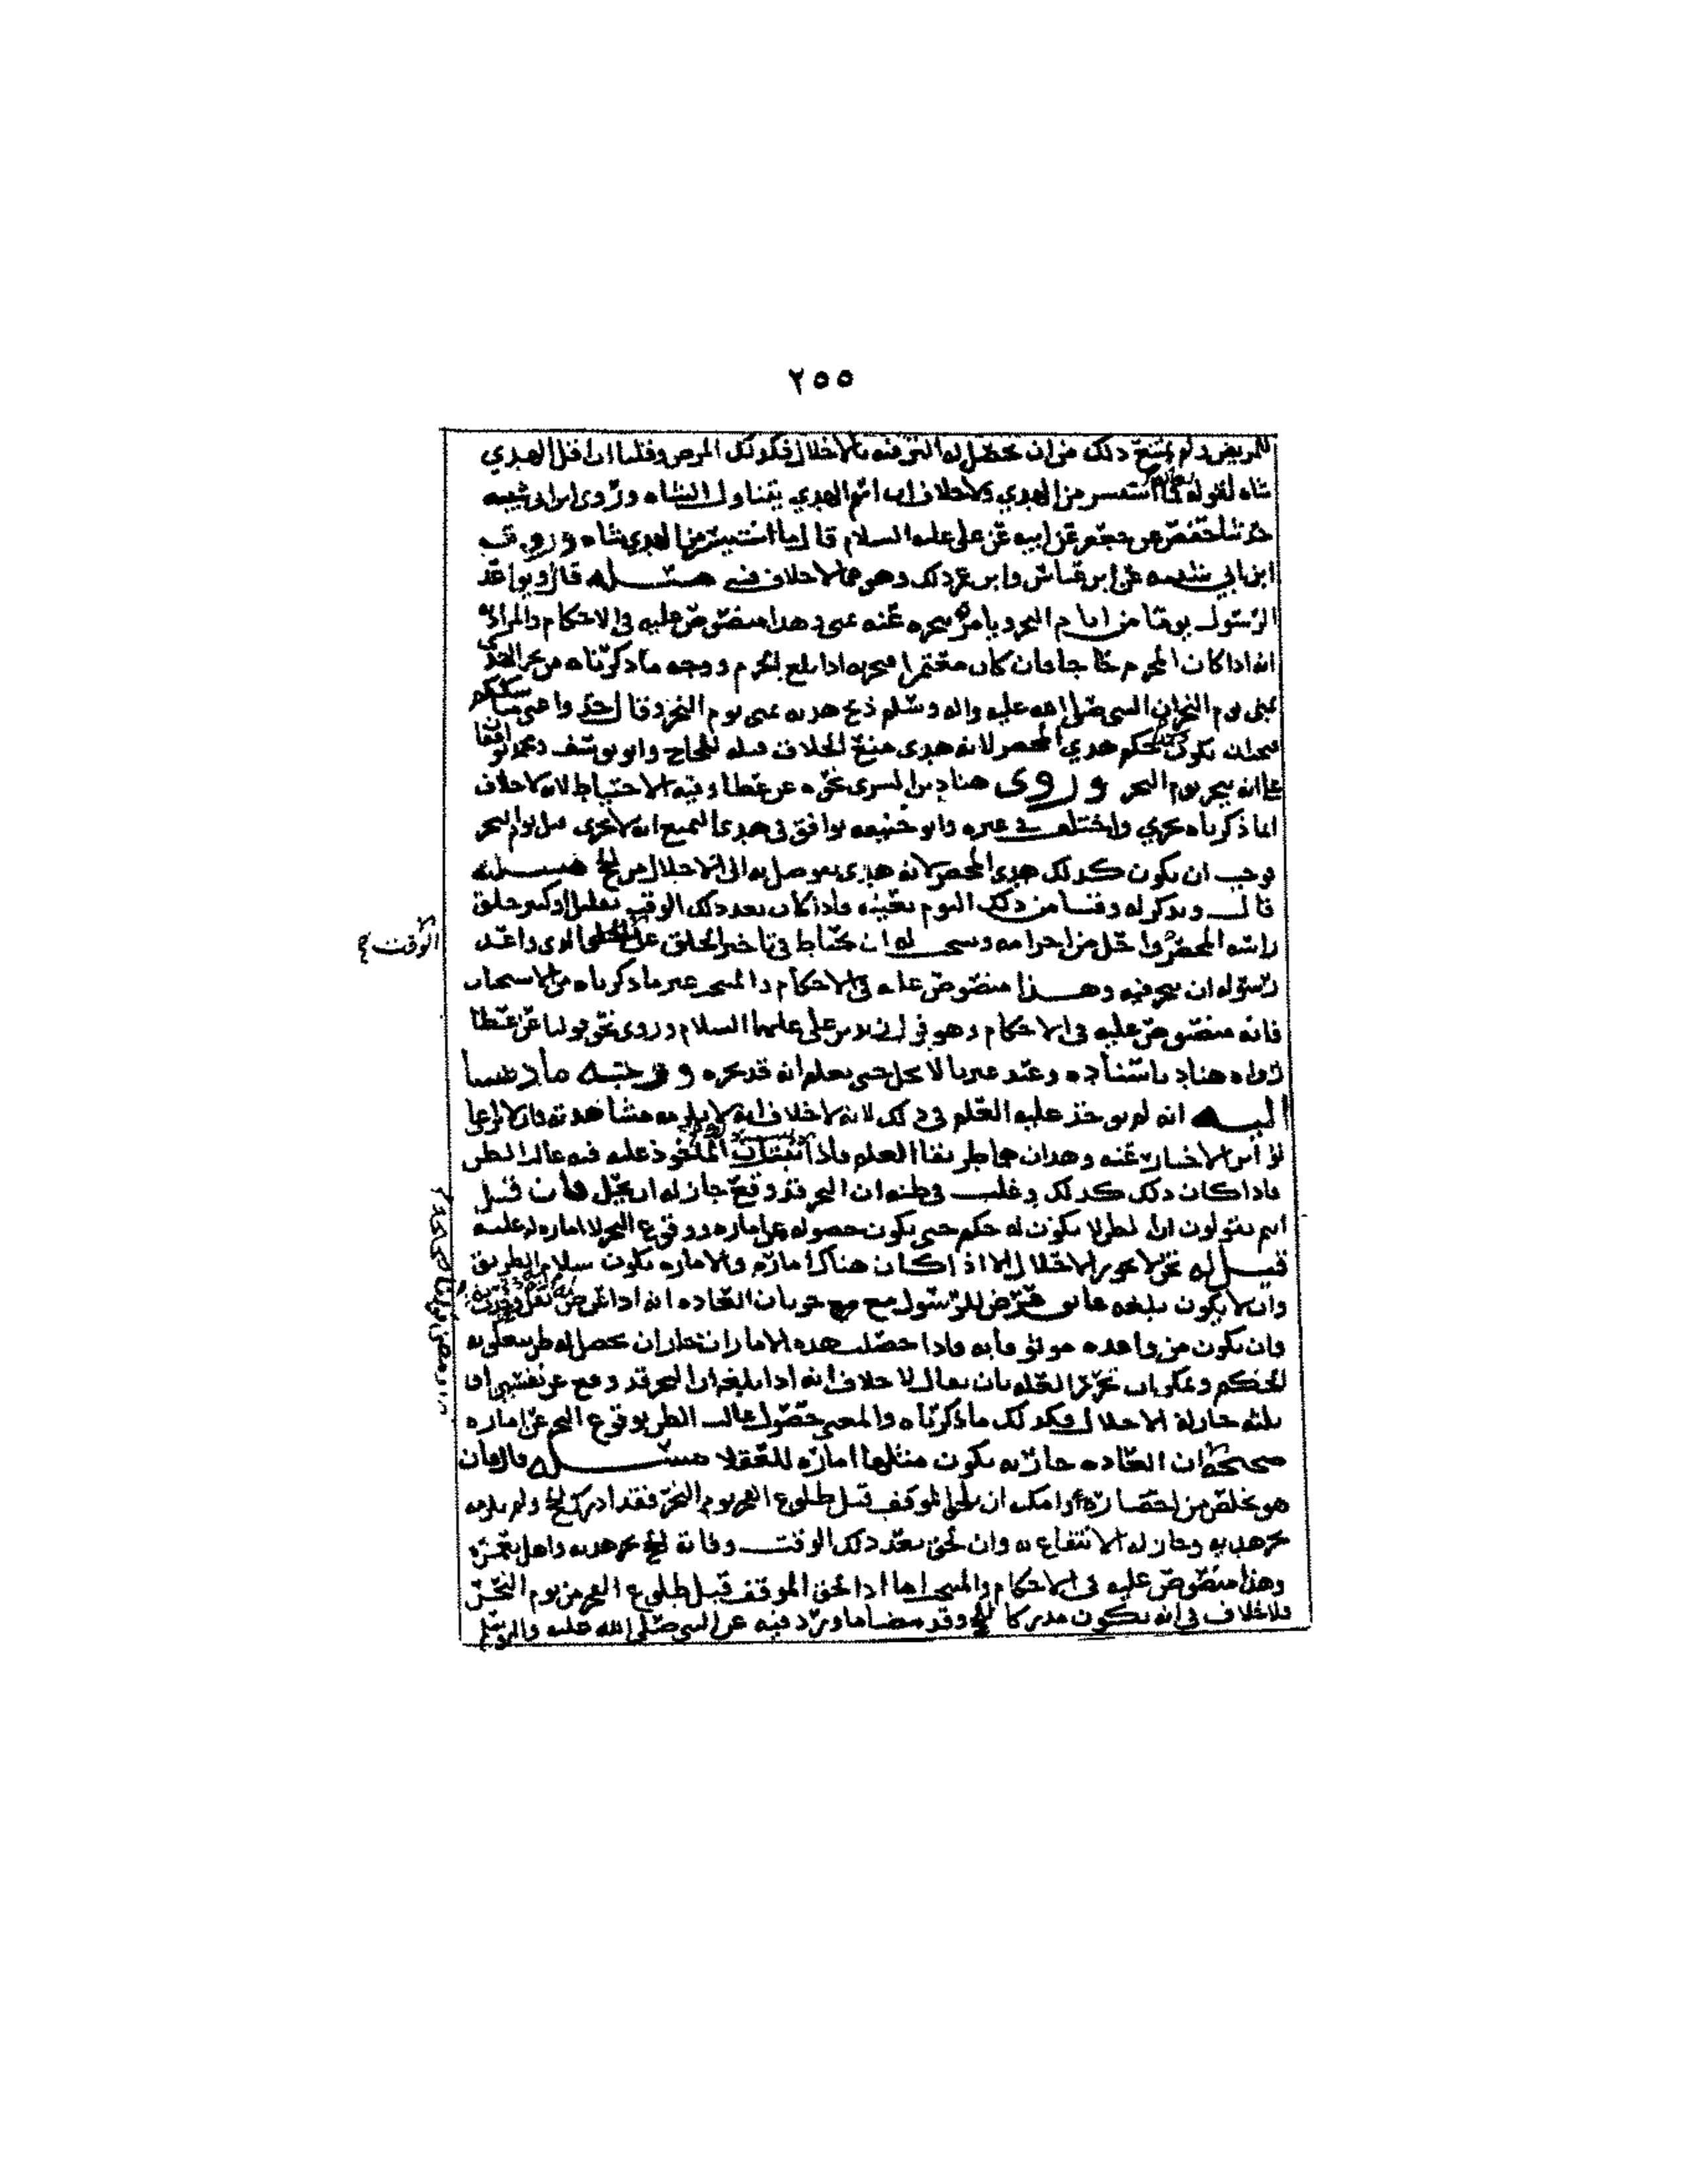 ٢٥٥
للمريض ولم يمتنع ذلك من ان يحصل له الترفيه بالاحلال فكذلك المرض وقلنا ان اقل الهدي
شاه لقوله تعالى فما استيسر من الهدي ولا خلاف ان اسم الهدي يتناول الشاه وروى ابن ابي شيبه
حدثنا حفص عن جعفر عن ابيه عن علي عليه السلام قال ما استيسر من الهدي شاه وروى
ابن ابي شيبه عن ابن عباس وابن عمر ذلك وهو مما لا خلاف فيه مسئله قال ويواعد
الرسول يوما من ايام النحر ويامره بنحره عنه بمنى وهذا منصوص عليه في الاحكام والمراد به
انه اذا كان المحرم حاجا فان كان معتمرا فنحره اذا بلغ الحرم ووجه ما ذكرناه من نحر الهدي
بمنى يوم النحر ان النبي صلى الله عليه واله وسلم ذبح هديه بمنى يوم النحر وقال خذوا عني مناسككم
فيجب ان يكون كذلك حكم هدي المحصر لانه هدي منع الخلاف قبله للحاج وابو يوسف ومحمد يوافقا
على انه ينحر يوم النحر وروى هناد بن السري نحوه عن عطا وفيه الاحتياط لانه لا خلاف
انما ذكرناه يجزي واختلف في غيره وابو حنيفه يوافق في هدي التمتع انه لا يجزي قبل يوم النحر
فوجب ان يكون كذلك هدي المحصر لانه هدي يتوصل به الى الاحلال من الحج مسئله
قال ويذكر له وقتا من ذلك اليوم بعينه فاذا كان بعد ذلك الوقت بقليل او كثير حلق
راسه المحصر واحل من احرامه ويستحب له ان يحتاط في تاخير الحلق عن الوقت الذي واعد
الوقت
رسوله ان ينحر فيه وهذا منصوص عليه في الاحكام والمنتخب غير ما ذكرناه من الاستحباب
فانه منصوص عليه في الاحكام وهو قول زيد بن علي عليهما السلام وروى نحو قولنا عن عطا
رواه هناد باسناده وعند غيرنا لا يحل حتى يعلم انه قد نحره ووجه ما ذهبنا
اليه انه لم يوخذ عليه العلم في ذلك لانه لا خلاف انه لا يلزمه مشاهدته
تواتر الاخبار عنه وهذان هما طريقا العلم فاذا الماخوذ عليه فيه غالب الظن
فاذا كان ذلك كذلك وغلب في ظنه ان النحر قد وقع جاز له ان يحل فان قيل
انتم تقولون ان الظن لا يكون له حكم حتى يكون حصوله عن اماره ووقوع النحر لا اماره له عليه
قيل له نحن لا نجوز الاحلال الا اذا كان هناك اماره والاماره تكون سلام الطريق
وان لا يكون بلغه عائق عرض للرسول مع جريان العاده انه اذا عرض نقل
وان يكون من واعده موثوقا به فاذا حصلت هذه الامارات جاز ان يحصل له ظن يتعلق به
الحكم ويمكن ان تحرر العله بان يقال لا خلاف انه اذا بلغه ان النحر قد وقع عن نفسين او
ثلثه جاز له الاحلال فكذلك ما ذكرناه والمعنى حصول غالب الظن بوقوع النحر عن اماره
صحيحه ان العاده جاريه بكون مثلها اماره للعقلا مسئله قال فان
هو تخلص من احصاره وامكنه ان يلحق الموقف قبل طلوع الفجر يوم النحر فقد ادرك الحج ولم يلزمه
نحر هديه وجاز له الانتفاع به وان لحق بعد ذلك الوقت وفاته الحج نحر هديه واهل بعمره
وهذا منصوص عليه في الاحكام والمنتخب اما اذا لحق الموقف قبل طلوع الفجر من يوم النحر
فلا خلاف في انه يكون مدركا للحج وقد مضا ما ورد فيه عن النبي صلى الله عليه واله وسلم